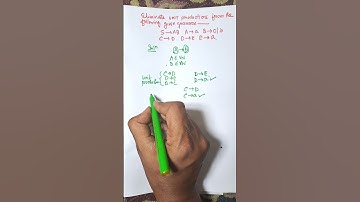 Eliminate unit productions from the
following given grammar ———
S→AB A→a B→C|b
C→D D→E E→a.
Soln
A→B
A ∈ VN
B ∈ VN
unit production { C→D D→E
D→E D→a ✓
B→C
C→D
C→a ✓